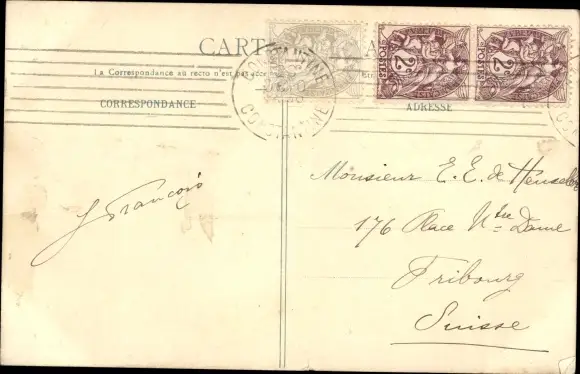 CARTE
La Correspondance au recto n'est pas
CORRESPONDANCE
ADRESSE
CONSTANTINE
CONSTANTINE
POSTES
2c
POSTES
2c
J François
Monsieur E. E. de Henseler
176 Place Ntre Dame
Fribourg
Suisse